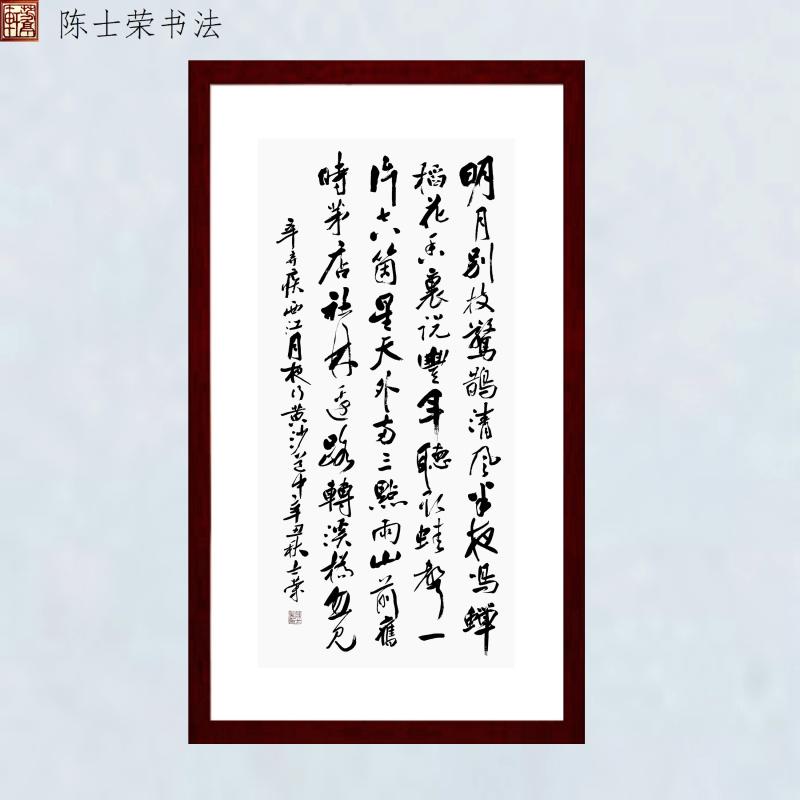 陈士荣书法
明月别枝驚鵲清风半夜鸣蟬
稻花香裏説豐年聽取蛙聲一
片七八箇星天外两三點雨山前舊
時茅店社林邊路轉溪橋忽見
辛弃疾西江月夜行黄沙道中辛丑秋士荣